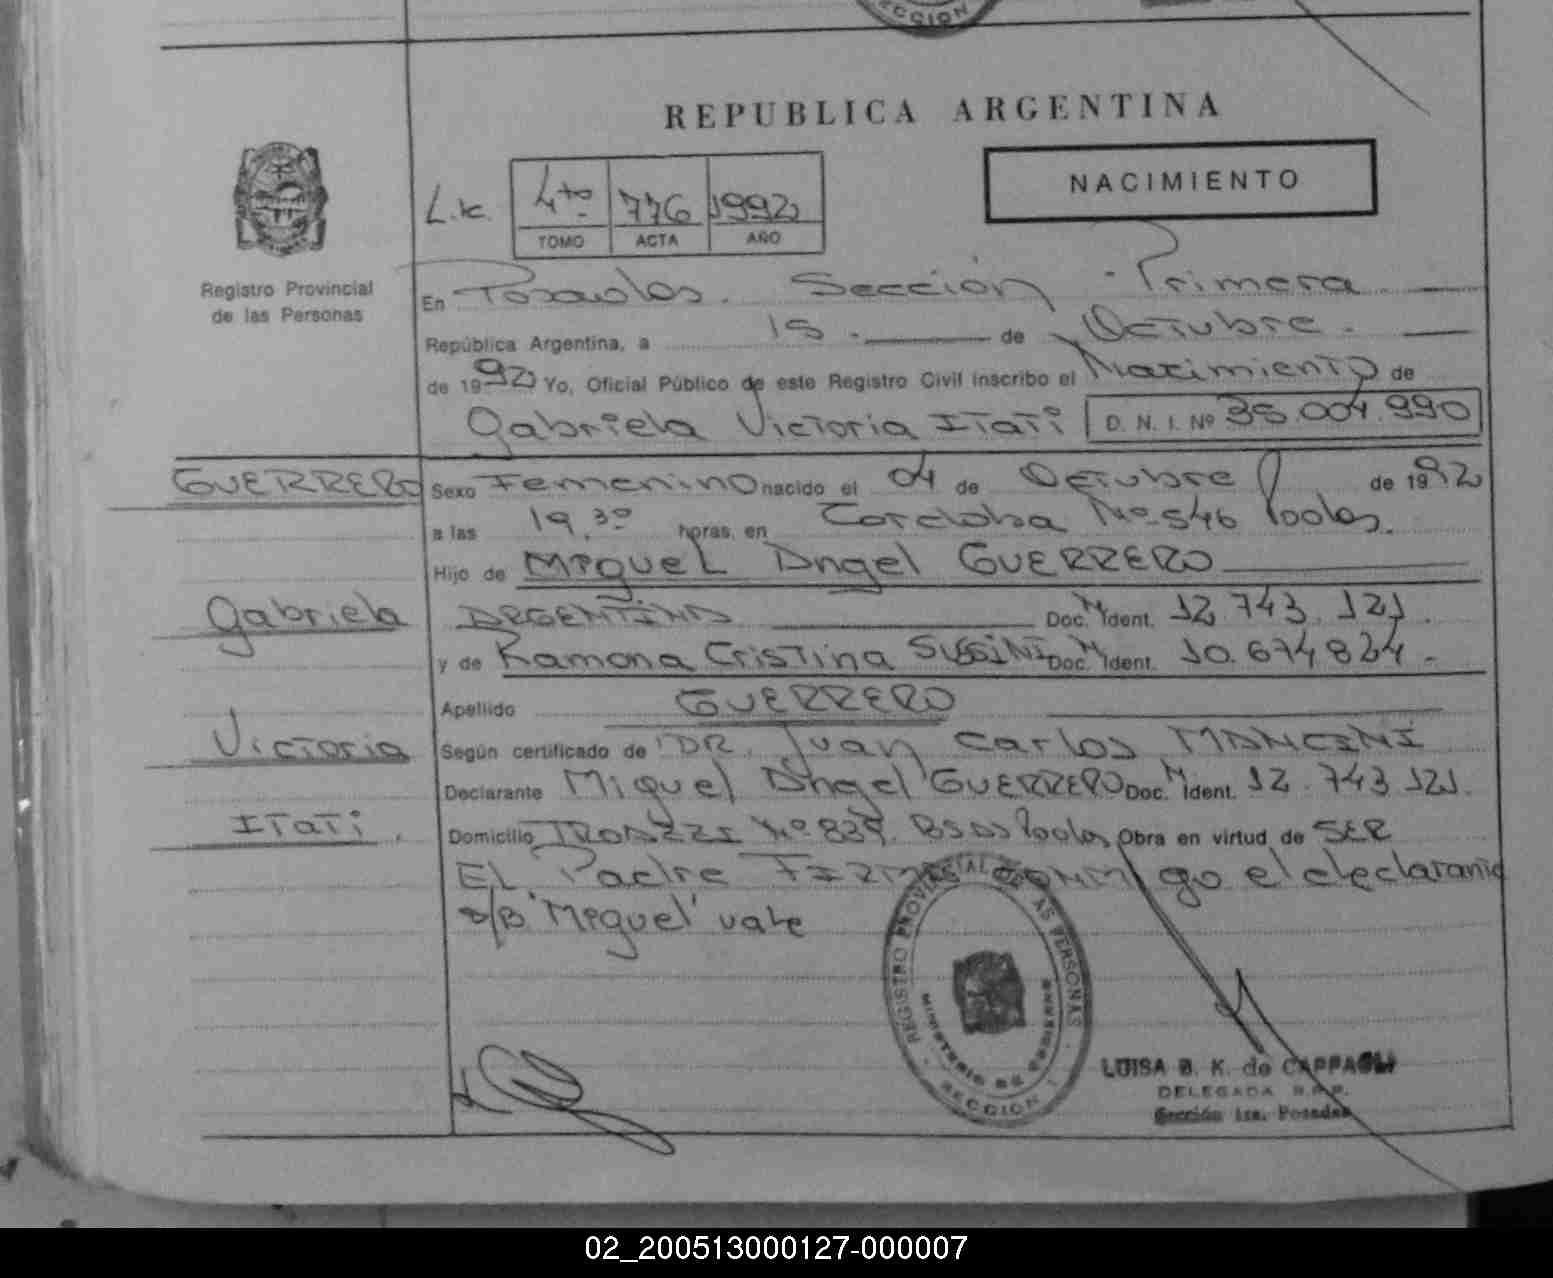 SECCION
REPUBLICA ARGENTINA
NACIMIENTO
L. 1c. 4to 776 1992
TOMO ACTA AÑO
Registro Provincial
de las Personas
En Posadas. Sección Primera
República Argentina, a 15 de Octubre.
de 1992 Yo, Oficial Público de este Registro Civil inscribo el Nacimiento de
Gabriela Victoria Itatí D. N. I. Nº 36.004.990
GUERRERO Sexo Femenino nacido el 04 de Octubre de 1992
a las 19.30 horas, en Cordoba Nº 546 Pdas.
Hijo de Miguel Angel GUERRERO
Gabriela ARGENTINO Doc. M Ident. 12.743.121.
y de Ramona Cristina SUSSINI Doc. M Ident. 10.674.824.
Apellido GUERRERO
Victoria Según certificado de DR. Juan Carlos MANCINI
Declarante Miguel Angel GUERRERO Doc. M Ident. 12.743.121.
Itatí. Domicilio Nº 839, BS AS Pdas Obra en virtud de SER
EL Padre FIRMA CONMIGO el declarante
s/B "Miguel" vale
REGISTRO PROVINCIAL DE LAS PERSONAS
MINISTERIO DE GOBIERNO
SECCION 1
LUISA B. K. de CAPPAGLI
DELEGADA R.P.P.
Sección 1ra. Posadas
02_200513000127-000007